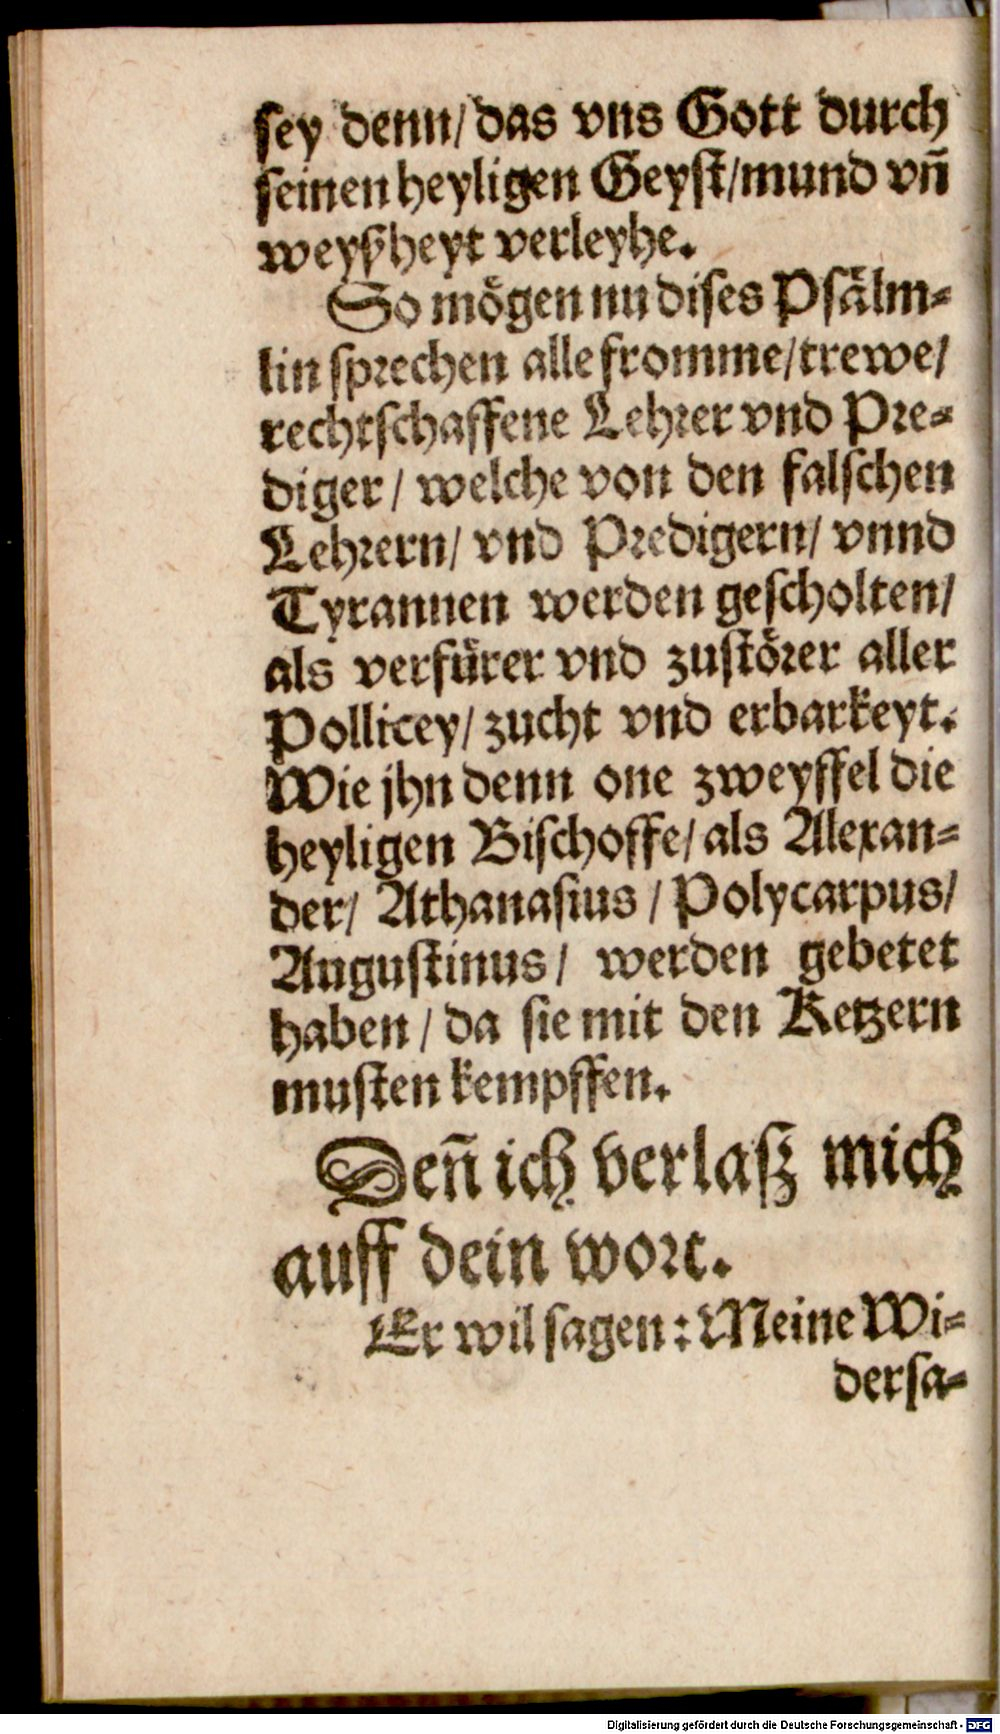 sey denn/ das vns Gott durch
seinen heyligen Geyst/mund vñ
weyßheyt verleyhe.
So mögen nu dises Psälm-
lin sprechen alle fromme/trewe/
rechtschaffene Lehrer vnd Pre-
diger/ welche von den falschen
Lehrern/ vnd Predigern/ vnnd
Tyrannen werden gescholten/
als verfürer vnd zustörer aller
Pollicey/ zucht vnd erbarkeyt.
Wie jhn denn one zweyffel die
heyligen Bischoffe/ als Alexan-
der/ Athanasius / Polycarpus/
Augustinus/ werden gebetet
haben/ da sie mit den Ketzern
musten kempffen.
Deñ ich verlaß mich
auff dein wort.
Er wil sagen: Meine Wi-
dersa-
Digitalisierung gefördert durch die Deutsche Forschungsgemeinschaft - DFG